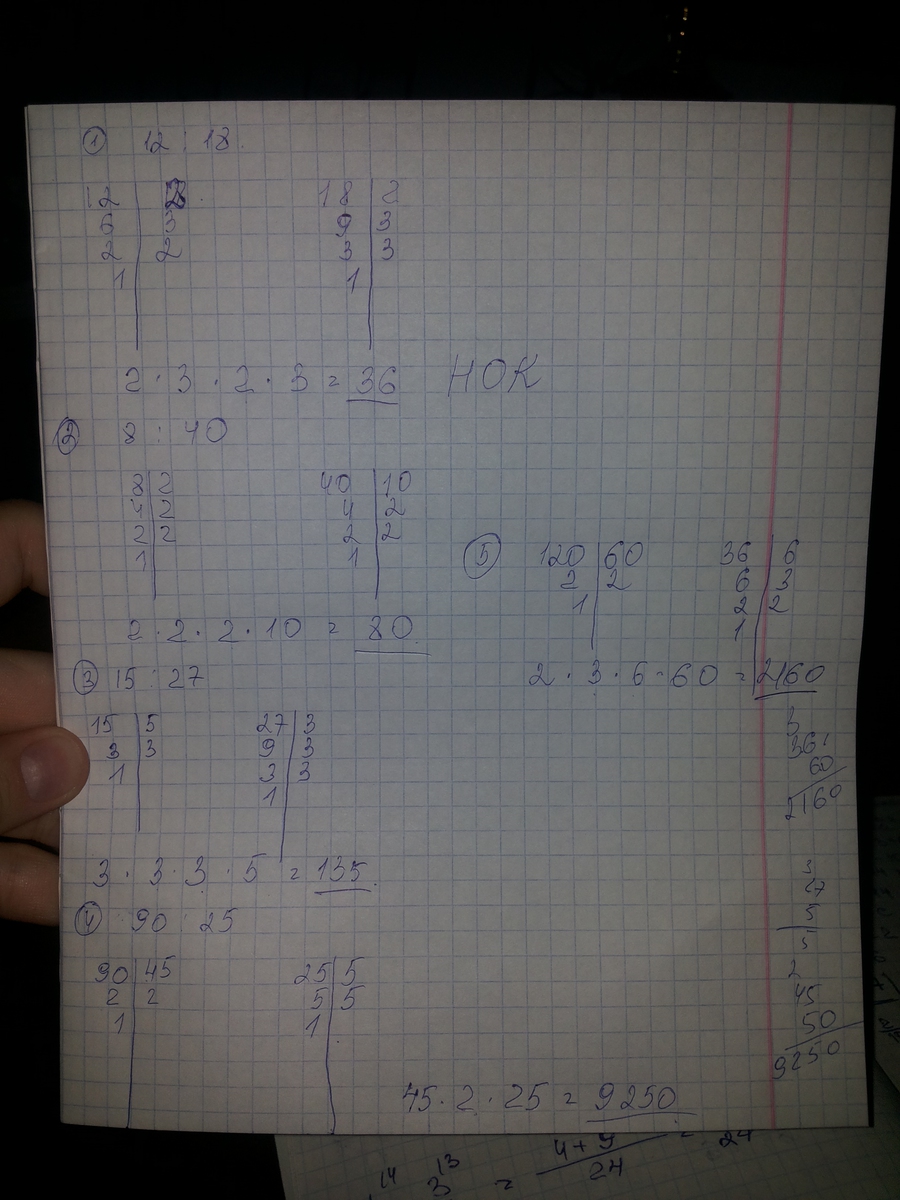 ① 12 : 18
12 | 2    18 | 2
6 | 3    9 | 3
2 | 2    3 | 3
1 |    1 |
2 · 3 · 2 · 3 = 36    НОК
② 8 : 40
8 | 2    40 | 10
4 | 2    4 | 2
2 | 2    2 | 2
1 |    1 |
2 · 2 · 2 · 10 = 80
③ 15 : 27
15 | 5    27 | 3
3 | 3    9 | 3
1 |    3 | 3
1 |
3 · 3 · 3 · 5 = 135
④ 90 : 25
90 | 45    25 | 5
2 | 2    5 | 5
1 |    1 |
45 · 2 · 25 = 9250
⑤ 120 | 60    36 | 6
2 | 2    6 | 3
1 |    2 | 2
1 |
2 · 3 · 6 · 60 = 2160
3
36
60
2160
3
27
5
5
2
45
50
9250
14    13
3 = 4+9 = 24
24